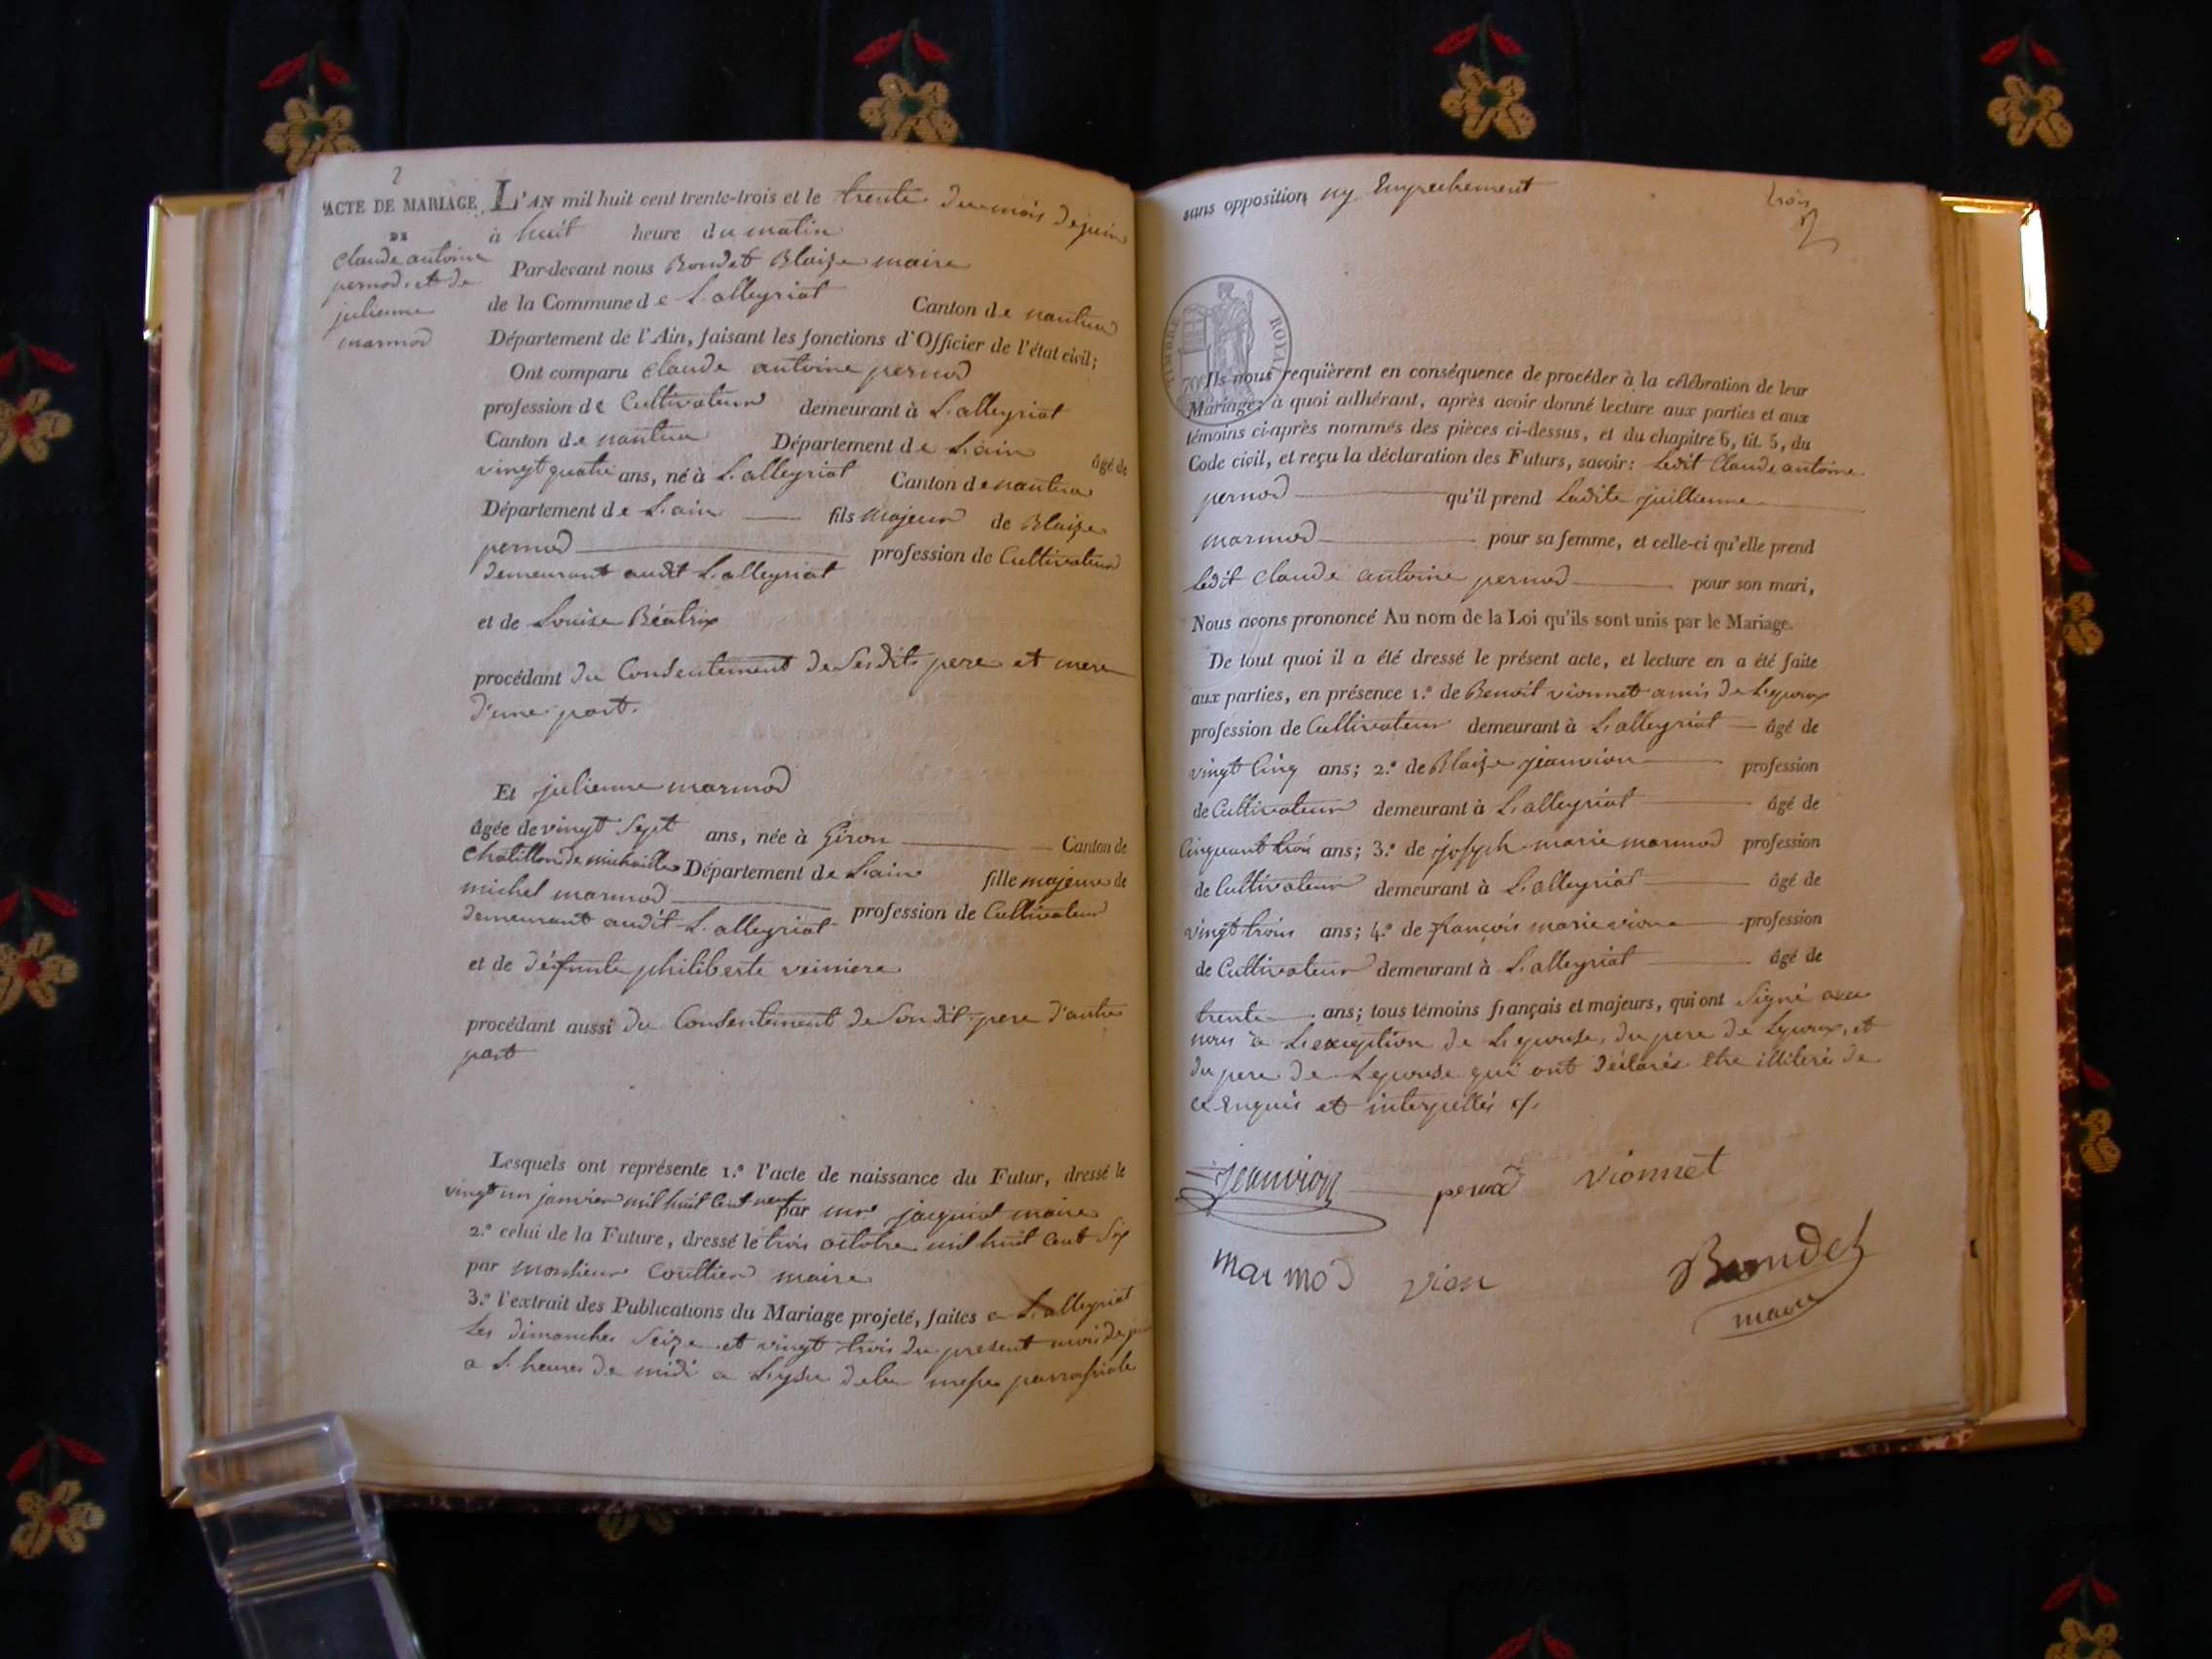 2
ACTE DE MARIAGE
DE
Claude antoine
pernod et de
julienne
marmod
L'AN mil huit cent trente-trois et le trente du mois de juin
à huit heure du matin
Par-devant nous Bondet Blaize maire
de la Commune de L'alleyriat Canton de nantua
Département de l'Ain, faisant les fonctions d'Officier de l'état civil;
Ont comparu Claude antoine pernod
profession de Cultivateur demeurant à L'alleyriat
Canton de nantua Département de L'ain âgé de
vingt quatre ans, né à L'alleyriat Canton de nantua
Département de L'ain fils majeur de Blaize
pernod profession de Cultivateur
demeurant audit L'alleyriat
et de Louise Béatrix
procédant du Consentement de Sesdits pere et mere
d'une part.
Et julienne marmod
âgée de vingt Sept ans, née à Giron Canton de
Chatillon de michaille Département de L'ain fille majeure de
michel marmod profession de Cultivateur
demeurant audit L'alleyriat
et de défunte philiberte
procédant aussi du Consentement de Son dit pere d'autre
part
Lesquels ont représente 1.º l'acte de naissance du Futur, dressé le
vingt un janvier mil huit Cent neuf par mr jacquiot maire
2.º celui de la Future, dressé le trois octobre mil huit Cent Six
par monsieur Coultier maire
3.º l'extrait des Publications du Mariage projeté, faites a L'alleyriat
les dimanches Seize et vingt trois du present mois de juin
a L'heure de midi a Lysue dela messe parroissiale
sans opposition ny Empechement
trois
TIMBRE ROYAL
70c
Ils nous requièrent en conséquence de procéder à la célébration de leur
Mariage; à quoi adhérant, après avoir donné lecture aux parties et aux
témoins ci-après nommés des pièces ci-dessus, et du chapitre 6, tit. 5, du
Code civil, et reçu la déclaration des Futurs, savoir: Ledit Claude antoine
pernod qu'il prend Ladite juillienne
marmod pour sa femme, et celle-ci qu'elle prend
ledit Claude antoine pernod pour son mari,
Nous avons prononcé Au nom de la Loi qu'ils sont unis par le Mariage.
De tout quoi il a été dressé le présent acte, et lecture en a été faite
aux parties, en présence 1.º de Benoit vionnet amis de Lepoux
profession de Cultivateur demeurant à L'alleyriat âgé de
vingt Cinq ans; 2.º de Blaize jeanvion profession
de Cultivateur demeurant à L'alleyriat âgé de
Cinquant trois ans; 3.º de joseph marie marmod profession
de Cultivateur demeurant à L'alleyriat âgé de
vingt trois ans; 4.º de françois marie vion profession
de Cultivateur demeurant à L'alleyriat âgé de
trente ans; tous témoins français et majeurs, qui ont Signé avec
nous a L'exception de Lepouse, du pere de Lepoux, et
du pere de Lepouse qui ont déclarés être illiteré de
ce Enquis et interpellés
Jeanvion pernod vionnet
marmod vion Bondet
maire